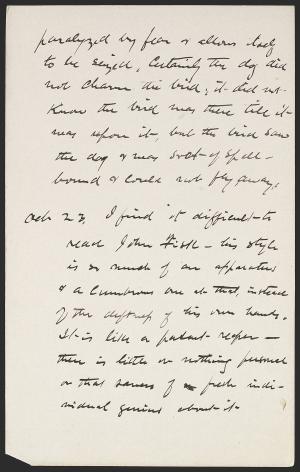 paralyzed by fear & allows itself
to be seized. Certainly the dog did
not charm the bird; it did not
know the bird was there till it
was upon it, but the bird saw
the dog & was sort of spell-
bound & could not fly away.
Oct 23, I find it difficult to
read John Fisk – his style
is so much of an apparatus
& a cumbrous one at that, instead
of the deftness of his own hands.
It is like a patent reaper –
there is little or nothing personal
or that savors of fresh indi-
vidual genius about it